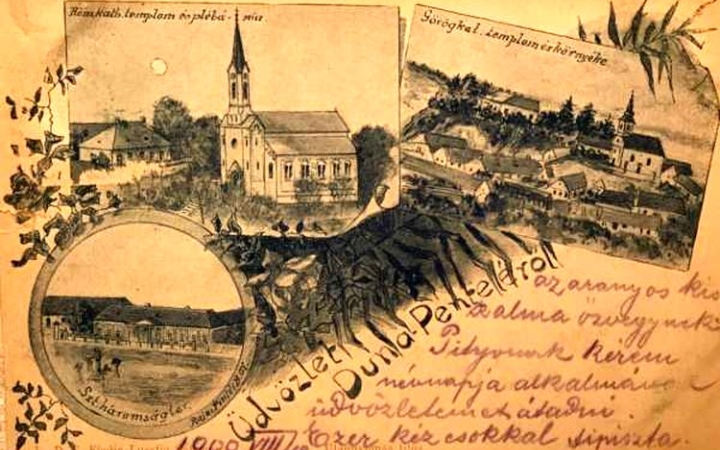 Róm. kath. templom és plébánia
Görögkel. templom és környéke
Szt. háromság tér
Üdvözlet
Duna-Penteláról
az aranyos kis
Zalma özvegynek
kérem
névnapja alkalmával
üdvözletemet átadni.
Ezer kéz csókkal
1900 VIII/